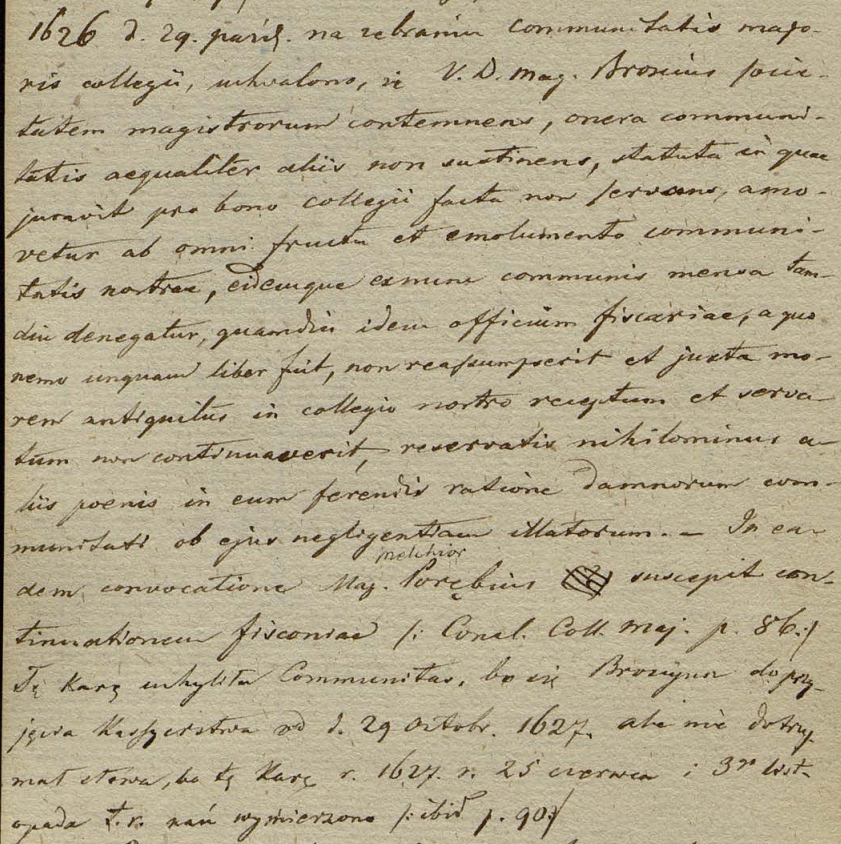 1626 d. 29. paźd. na zebraniu communitatis majo-
ris collegii, uchwalono, iż V. D. Mag. Broscius socie-
tatem magistrorum contemnens, onera communi-
tatis aequaliter aliis non sustinens, statuta in quae
juravit pro bono collegii facta non servans, amo-
vetur ab omni fructu et emolumento communi-
tatis nostrae, eidemque ex nunc communis mensa tam-
diu denegatur, quamdiu idem officium fiscariae, a quo
nemo unquam liber fuit, non reassumpserit et juxta mo-
rem antiquitus in collegio nostro receptum et serva-
tum non continuaverit, reservatis nihilominus a-
liis poenis in eum ferendis ratione damnorum com-
munitati ob ejus negligentiam illatorum. – In ea-
dem convocatione Mag. Melchior Porębius suscepit con-
tinuationem fisconiae /: Concl. Coll. maj. p. 86. :/
Tę karę uchyliła Communitas, bo się Brosyusz do przy-
jęcia Kassyerstwa od d. 29 Octobr. 1627. ale nie dotrzy-
mał słowa, bo tę karę r. 1627. r. 25 czerwca i 3º list-
opada t. r. nań wymierzono /: ibid p. 90 :/